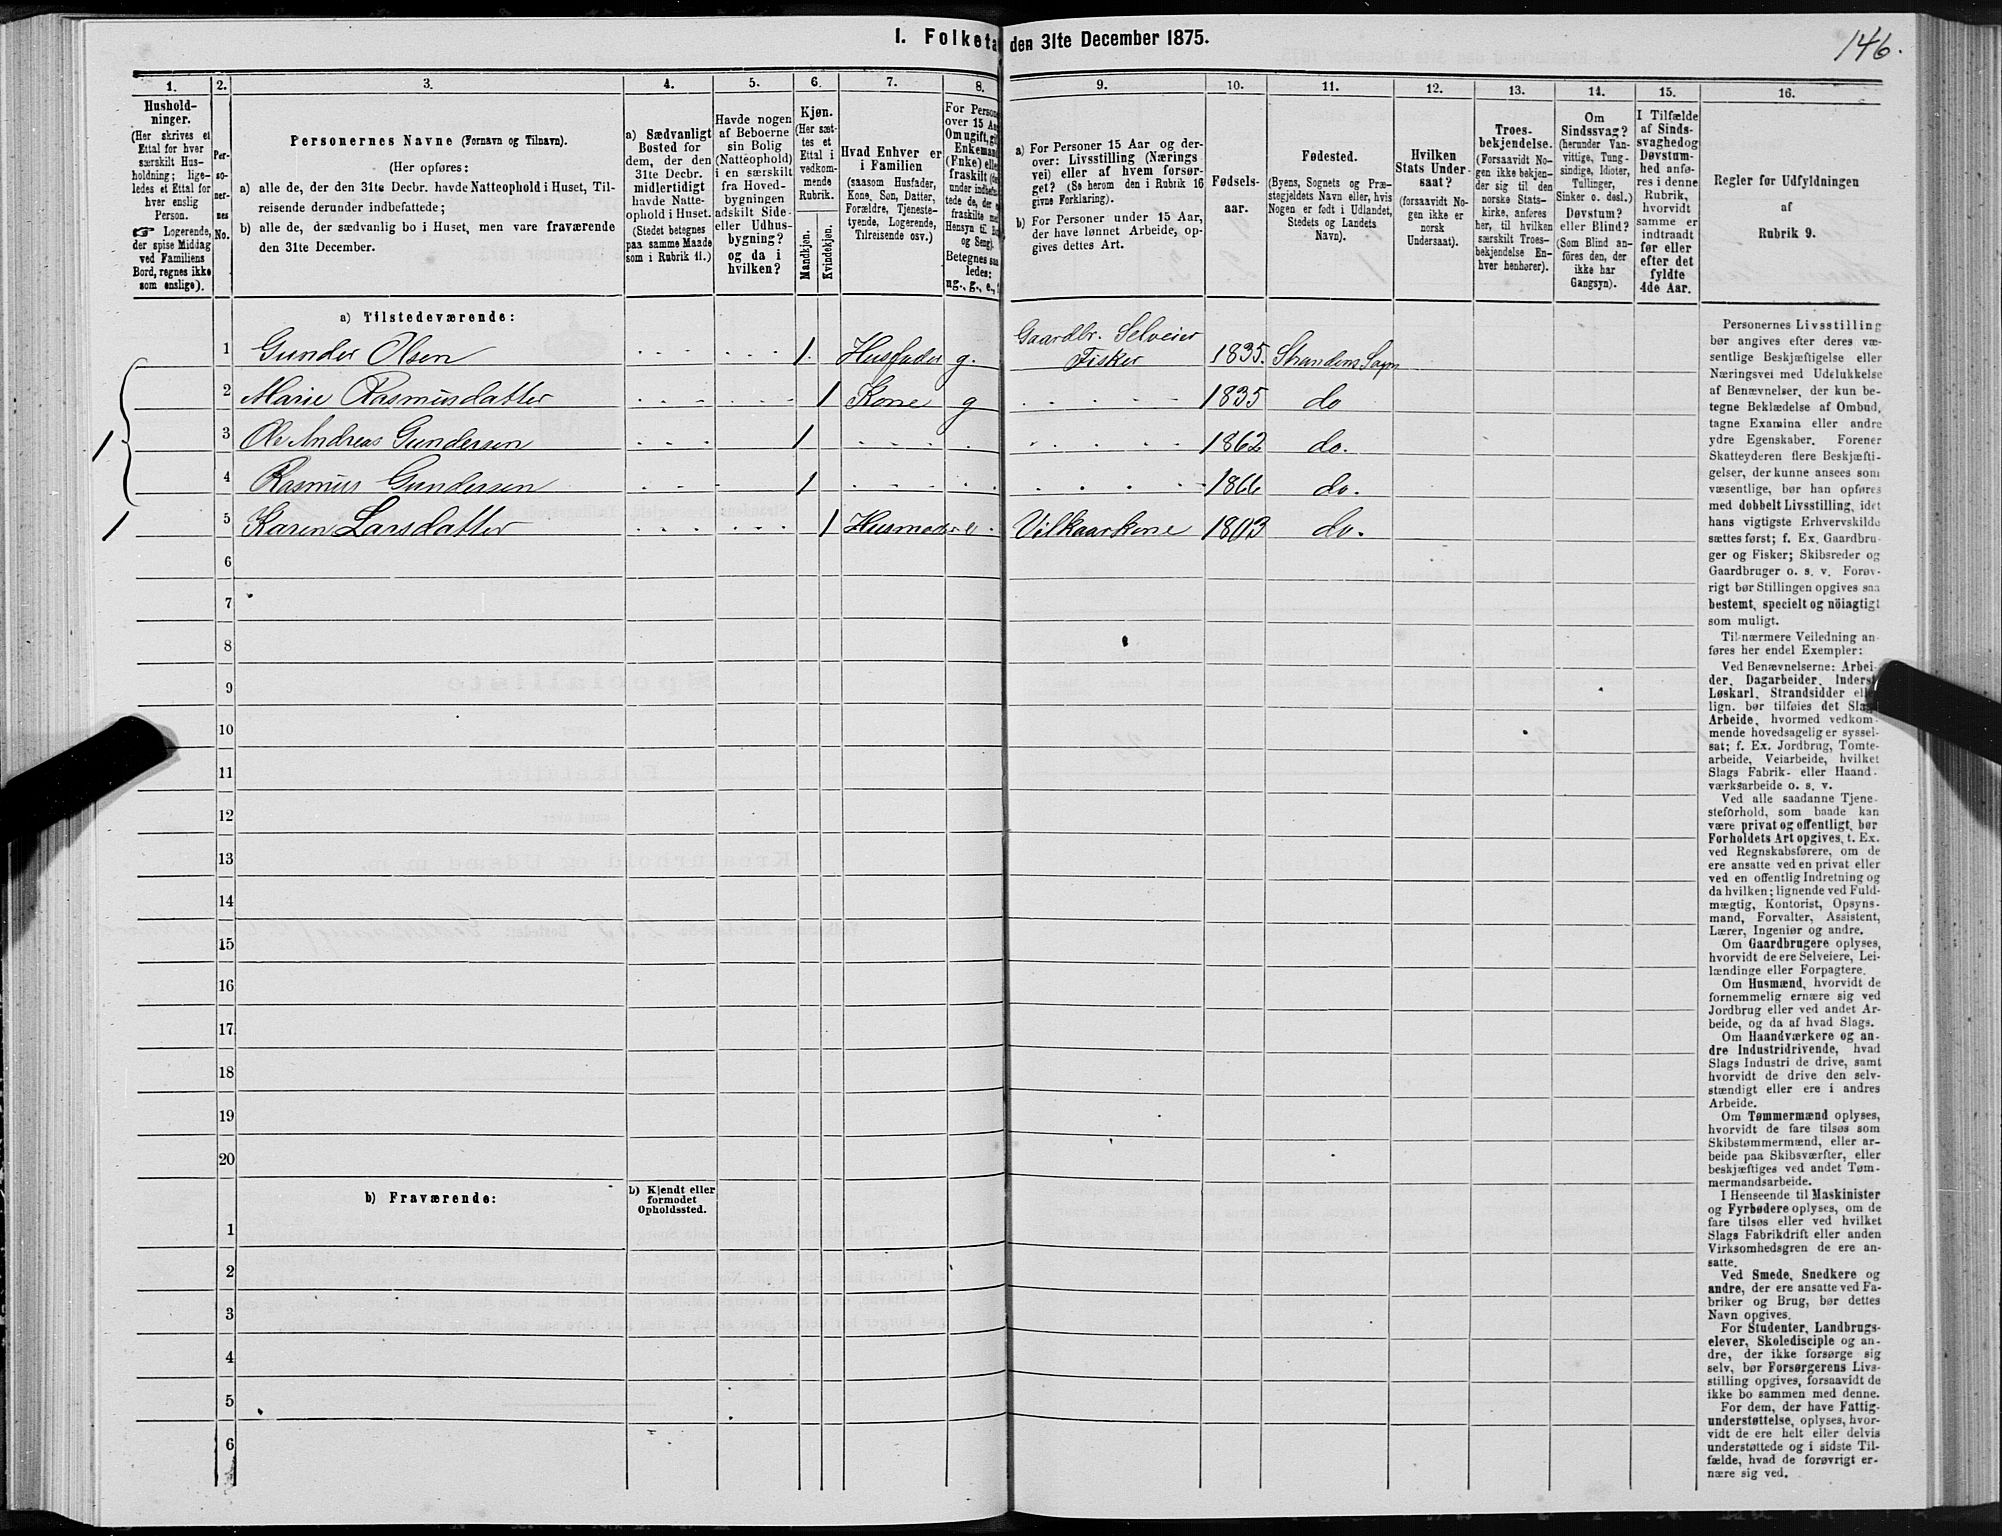 I. Folketæ den 31te December 1875.
146.
1.
2.
3.
4.
5.
6.
7.
8.
9.
10.
11.
12.
13.
14.
15.
16.
Hushold-
ninger.
(Her skrives et
Ettal for hver
særskilt Hus-
holdning; lige-
ledes et Ettal for
hver enslig
Person.
☞ Logerende,
der spise Middag
ved Familiens
Bord, regnes ikke
som enslige).
Per-
so-
ner-
nes
No.
Personernes Navne (Fornavn og Tilnavn).
(Her opføres:
a) alle de, der den 31te Decbr. havde Natteophold i Huset, Til-
reisende derunder indbefattede;
b) alle de, der sædvanlig bo i Huset, men vare fraværende
den 31te December.
a) Sædvanligt
Bosted for
dem, der den
31te Decbr.
midlertidigt
havde Natte-
ophold i Huset.
(Stedet betegnes
paa samme Maade
som i Rubrik 11.)
Havde nogen
af Beboerne
sin Bolig
(Natteophold)
i en særskilt
fra Hoved-
bygningen
adskilt Side-
eller Udhus-
bygning?
og da i
hvilken?
Kjøn.
(Her sæt-
tes et
Ettal i
vedkom-
mende
Rubrik.
Mandkjøn.
Kvindekjøn.
Hvad Enhver er
i Familien
(saasom Husfader,
Kone, Søn, Datter,
Forældre, Tjeneste-
tyende, Logerende,
Tilreisende osv.)
For Person
over 15 Aa
Om ugift, gif
Enkemand
(Enke) elle
fraskilt (de
under indbefat-
tede de, der e
fraskilte med
Hensyn til Bo
og Seng).
Betegnes saa
ledes:
ug., g., e., f
a) For Personer 15 Aar og der-
over: Livsstilling (Nærings
vei) eller af hvem forsør-
get? (Se herom den i Rubrik 16
givne Forklaring).
b) For Personer under 15 Aar,
der have lønnet Arbeide, op-
gives dettes Art.
Fødsels-
aar.
Fødested.
(Byens, Sognets og Præ-
stegjeldets Navn eller, hvis
Nogen er født i Udlandet,
Stedets og Landets
Navn).
Hvilken
Stats Under
saat?
(forsaavidt No-
gen ikke er
norsk
Undersaat).
Troes-
bekjendelse.
(Forsaavidt No-
gen ikke bekjen-
der sig til den
norske Stats-
kirke, anføres
her, til hvilken
særskilt Troes-
bekjendelse En-
hver henhører).
Om
Sindssvag?
(herunder Van-
vittige, Tung-
sindige, Idioter,
Tullinger,
Sinker o. desl.)
Døvstum?
eller Blind?
(Som Blind an-
føres den, der
ikke har
Gangsyn).
I Tilfælde
af Sinds-
svaghed og
Døvstum-
hed anfø-
res i denne
Rubrik,
hvorvidt
samme er
indtraadt
før eller
efter det
fyldte
4de Aar.
Regler for Udfyldningen
af
Rubrik 9.
a) Tilstedeværende:
1 Gunder Olsen 1. Husfader g. Gaardbr. Selveier Fisker 1835. Strandens Sogn
2 Marie Rasmusdatter 1 Kone g 1835 do
1
3 Ole Andreas Gundersen 1 1862 do.
4 Rasmus Gundersen 1 1866 do.
1 5 Karen Larsdatter 1 Husmoder e. Vilkaarskone 1803 do.
6
7
8
9
10
11
12
13
14
15
16
17
18
19
20
b) Fraværende:
b) Kjendt eller
formodet
Opholdssted.
1
2
3
4
5
6
Personernes Livsstilling
bør angives efter deres væ-
sentlige Beskjæftigelse eller
Næringsvei med Udelukkelse
af Benævnelser, der kun be-
tegne Beklædelse af Ombud,
tagne Examina eller andre
ydre Egenskaber. Forener
Skatteyderen flere Beskjæfti-
gelser, der kunne ansees som
væsentlige, bør han opføres
med dobbelt Livsstilling, idet
hans vigtigste Erhvervskilde
sættes først; f. Ex. Gaardbru-
ger og Fisker; Skibsreder og
Gaardbruger o. s. v. Forøv-
rigt bør Stillingen opgives saa
bestemt, specielt og nöiagtigt
som muligt.
Til nærmere Veiledning an-
føres her endel Exempler:
Ved Benævnelserne: Arbei-
der, Dagarbeider, Inderst,
Løskarl, Strandsidder eller
lign. bør tilføies det Slags
Arbeide, hvormed vedkom-
mende hovedsagelig er syssel-
sat; f. Ex. Jordbrug, Tomte-
arbeide, Veiarbeide, hvilket
Slags Fabrik- eller Haand-
værksarbeide o. s. v.
Ved alle saadanne Tjene-
steforhold, som baade kan
være privat og offentligt, bør
Forholdets Art opgives, t. Ex.
ved Regnskabsførere, om de
ere ansatte ved en privat eller
ved en offentlig Indretning og
da hvilken; lignende ved Fuld-
mægtig, Kontorist, Opsyns-
mand, Forvalter, Assistent,
Lærer, Ingeniør og andre.
Om Gaardbrugere oplyses,
hvorvidt de ere Selveiere, Lei-
lændinge eller Forpagtere.
Om Husmænd, hvorvidt de
fornemmelig ernære sig ved
Jordbrug eller ved andet Ar-
beide, og da af hvad Slags.
Om Haandværkere og an-
dre Industridrivende, hvad
Slags Industri de drive, samt
hvorvidt de drive den selv-
stændigt eller ere i andres
Arbeide.
Om Tømmermænd oplyses,
hvorvidt de fare tilsøs som
Skibstømmermænd, eller ar-
beide paa Skibsværfter, eller
beskjæftiges ved andet Tøm-
mermandsarbeide.
I Henseende til Maskinister
og Fyrbødere oplyses, om de
fare tilsøs eller ved hvilket
Slags Fabrikdrift eller anden
Virksomhedsgren de ere an-
satte.
Ved Smede, Snedkere og
andre, der ere ansatte ved Fa-
briker og Brug, bør dettes
Navn opgives.
For Studenter, Landbrugs-
elever, Skoledisciple og an-
dre, der ikke forsørge sig
selv, bør Forsørgerens Livs-
stilling opgives, forsaavidt de
ikke bo sammen med denne.
For dem, der have Fattig-
understøttelse, oplyses, hvor-
vidt de ere helt eller delvis
understøttede og i sidste Til-
fælde, hvad de forøvrigt er-
nære sig ved.